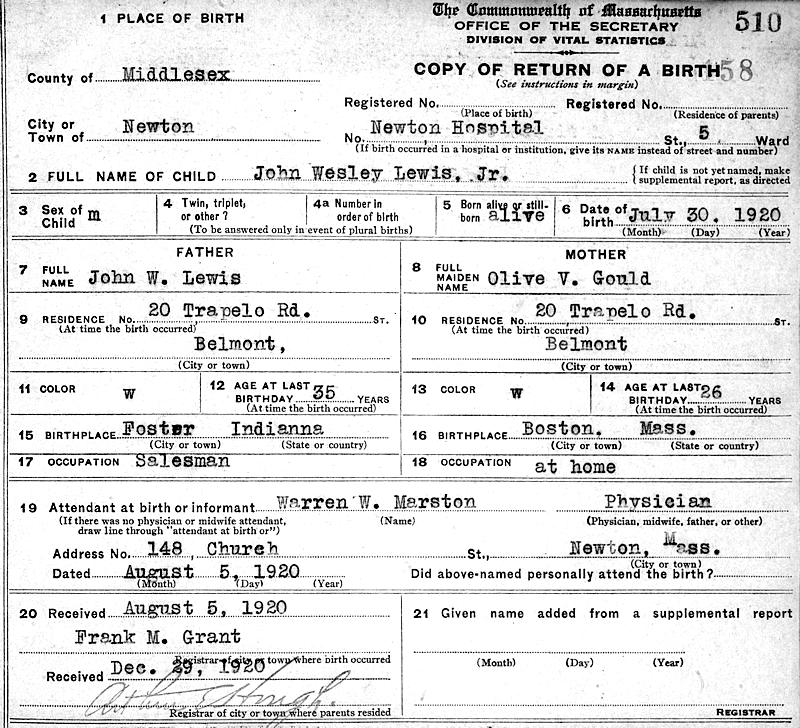 The Commonwealth of Massachusetts
OFFICE OF THE SECRETARY
DIVISION OF VITAL STATISTICS
510
1 PLACE OF BIRTH
COPY OF RETURN OF A BIRTH
58
(See instructions in margin)
County of Middlesex
Registered No. Registered No.
(Place of birth) (Residence of parents)
City or Town of Newton
No. Newton Hospital St., 5 Ward
(If birth occurred in a hospital or institution, give its NAME instead of street and number)
2 FULL NAME OF CHILD John Wesley Lewis, Jr. {If child is not yet named, make supplemental report, as directed
3 Sex of Child m
4 Twin, triplet, or other?
4a Number in order of birth
(To be answered only in event of plural births)
5 Born alive or still-born alive
6 Date of birth July 30. 1920
(Month) (Day) (Year)
FATHER
MOTHER
7 FULL NAME John W. Lewis
8 FULL MAIDEN NAME Olive V. Gould
9 RESIDENCE No. 20 Trapelo Rd. ST.
(At time the birth occurred)
Belmont,
(City or town)
10 RESIDENCE No. 20 Trapelo Rd. St.
(At time the birth occurred)
Belmont
(City or town)
11 COLOR W
12 AGE AT LAST BIRTHDAY 35 YEARS
(At time the birth occurred)
13 COLOR W
14 AGE AT LAST BIRTHDAY 26 YEARS
(At time the birth occurred)
15 BIRTHPLACE Foster Indianna
(City or town) (State or country)
16 BIRTHPLACE Boston. Mass.
(City or town) (State or country)
17 OCCUPATION Salesman
18 OCCUPATION at home
19 Attendant at birth or informant Warren W. Marston Physician
(If there was no physician or midwife attendant, draw line through "attendant at birth or")
(Name) (Physician, midwife, father, or other)
Address No. 148 Church St., Newton, Mass.
(City or town)
Dated August 5, 1920
(Month) (Day) (Year)
Did above-named personally attend the birth?
20 Received August 5, 1920
Frank M. Grant
Registrar of city or town where birth occurred
Received Dec. 29, 1920
Registrar of city or town where parents resided
21 Given name added from a supplemental report
(Month) (Day) (Year)
REGISTRAR